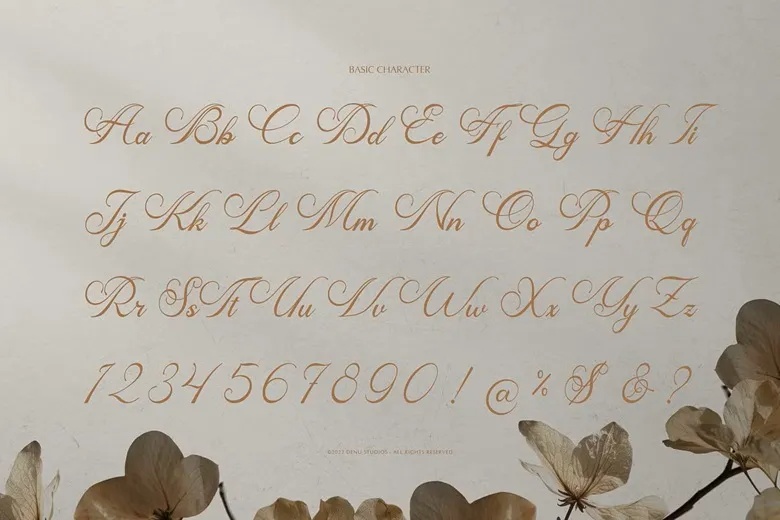 BASIC CHARACTER
Aa Bb Cc Dd Ee Ff Gg Hh Ii
Jj Kk Ll Mm Nn Oo Pp Qq
Rr Ss Tt Uu Vv Ww Xx Yy Zz
1234567890! @ % $ & ?
STUDIOS - ALL RIGHTS RESERVED